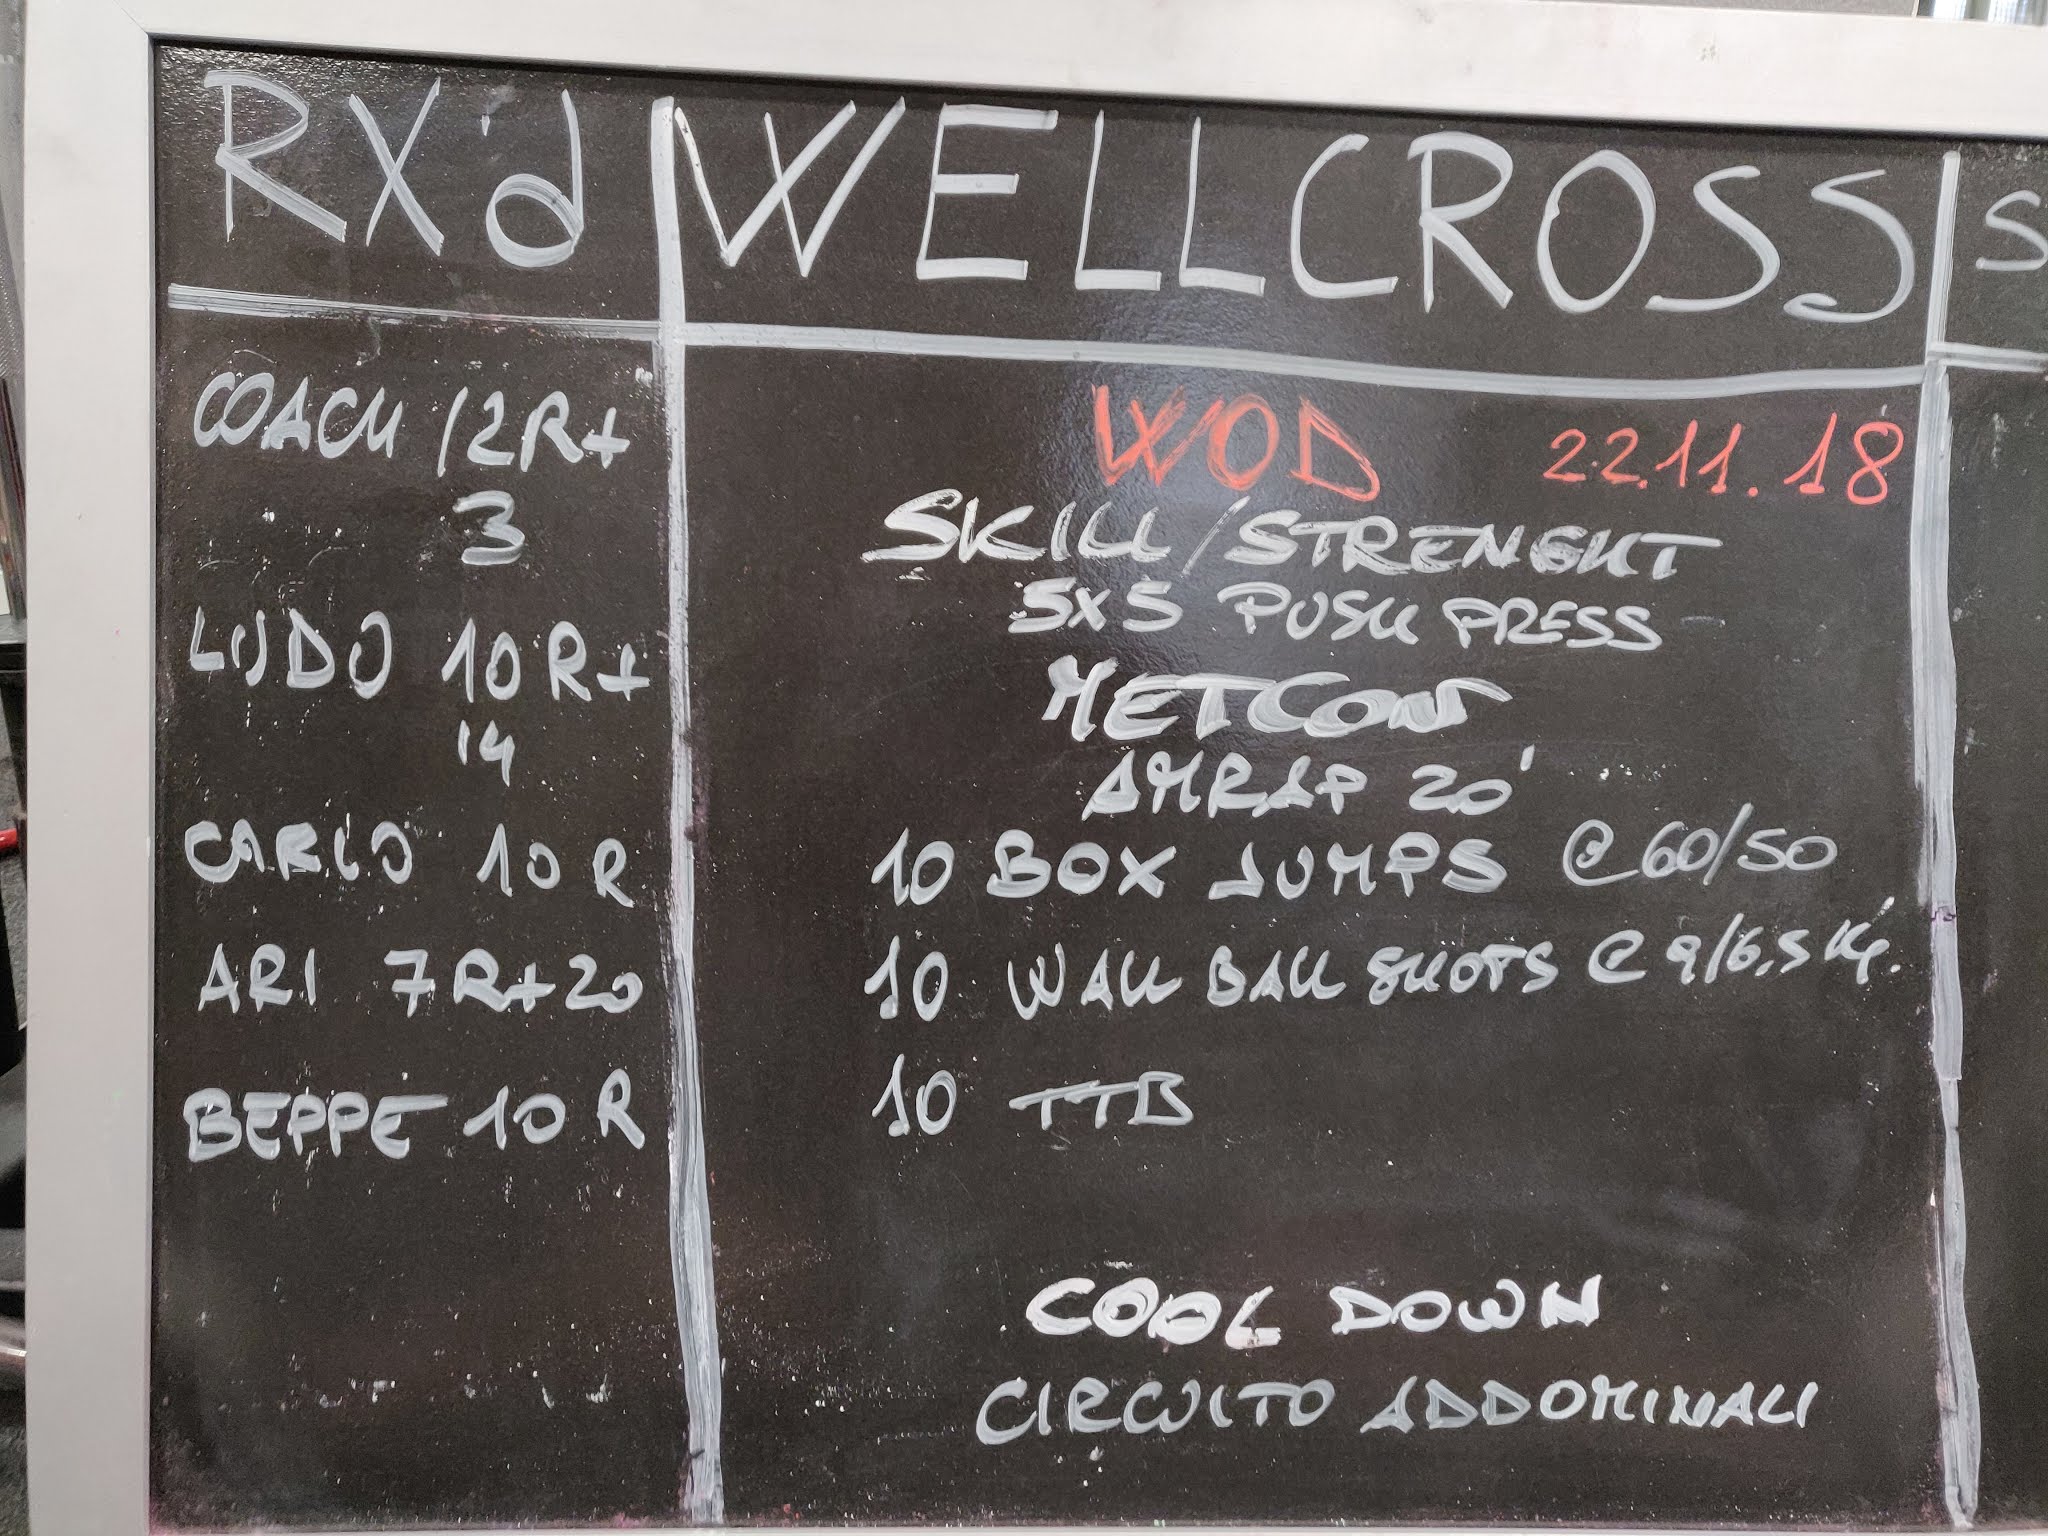 RX'd
COACH 12R+
3
LUDO 10R+
14
CARLO 10 R
ARI 7R+20
BEPPE 10 R
WELLCROSS
WOD 22.11.18
SKILL/STRENGHT
5x5 PUSH PRESS
METCON
AMRAP 20'
10 BOX JUMPS @ 60/50
10 WALL BALL SHOTS @ 9/6,5 Kg.
10 TTB
COOL DOWN
CIRCUITO ADDOMINALI
S